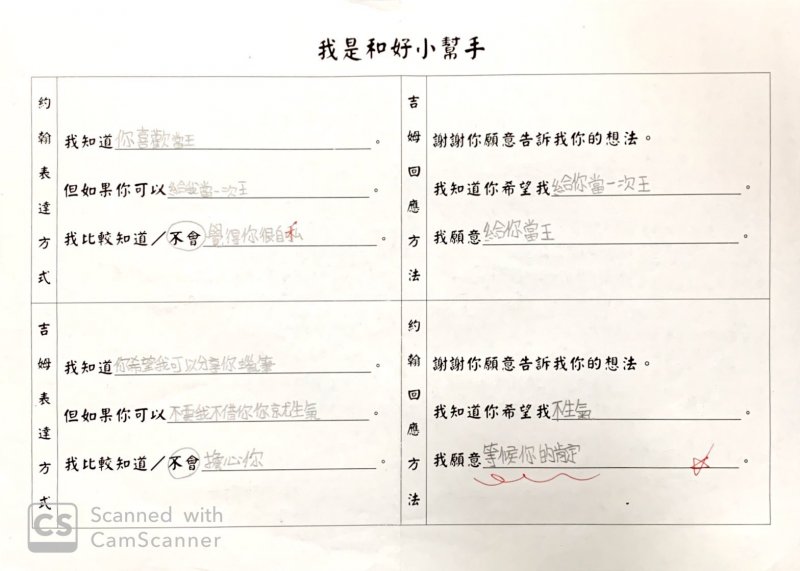 我是和好小幫手
約翰表達方式
我知道你喜歡當王。
但如果你可以給我當一次王。
我比較知道／不會覺得你很自私。
吉姆回應方法
謝謝你願意告訴我你的想法。
我知道你希望我給你當一次王。
我願意給你當王。
吉姆表達方式
我知道你希望我可以分享你蠟筆。
但如果你可以不要我不借你你就生氣。
我比較知道／不會擔心你。
約翰回應方法
謝謝你願意告訴我你的想法。
我知道你希望我不生氣。
我願意等候你的肯定。
CS Scanned with
CamScanner